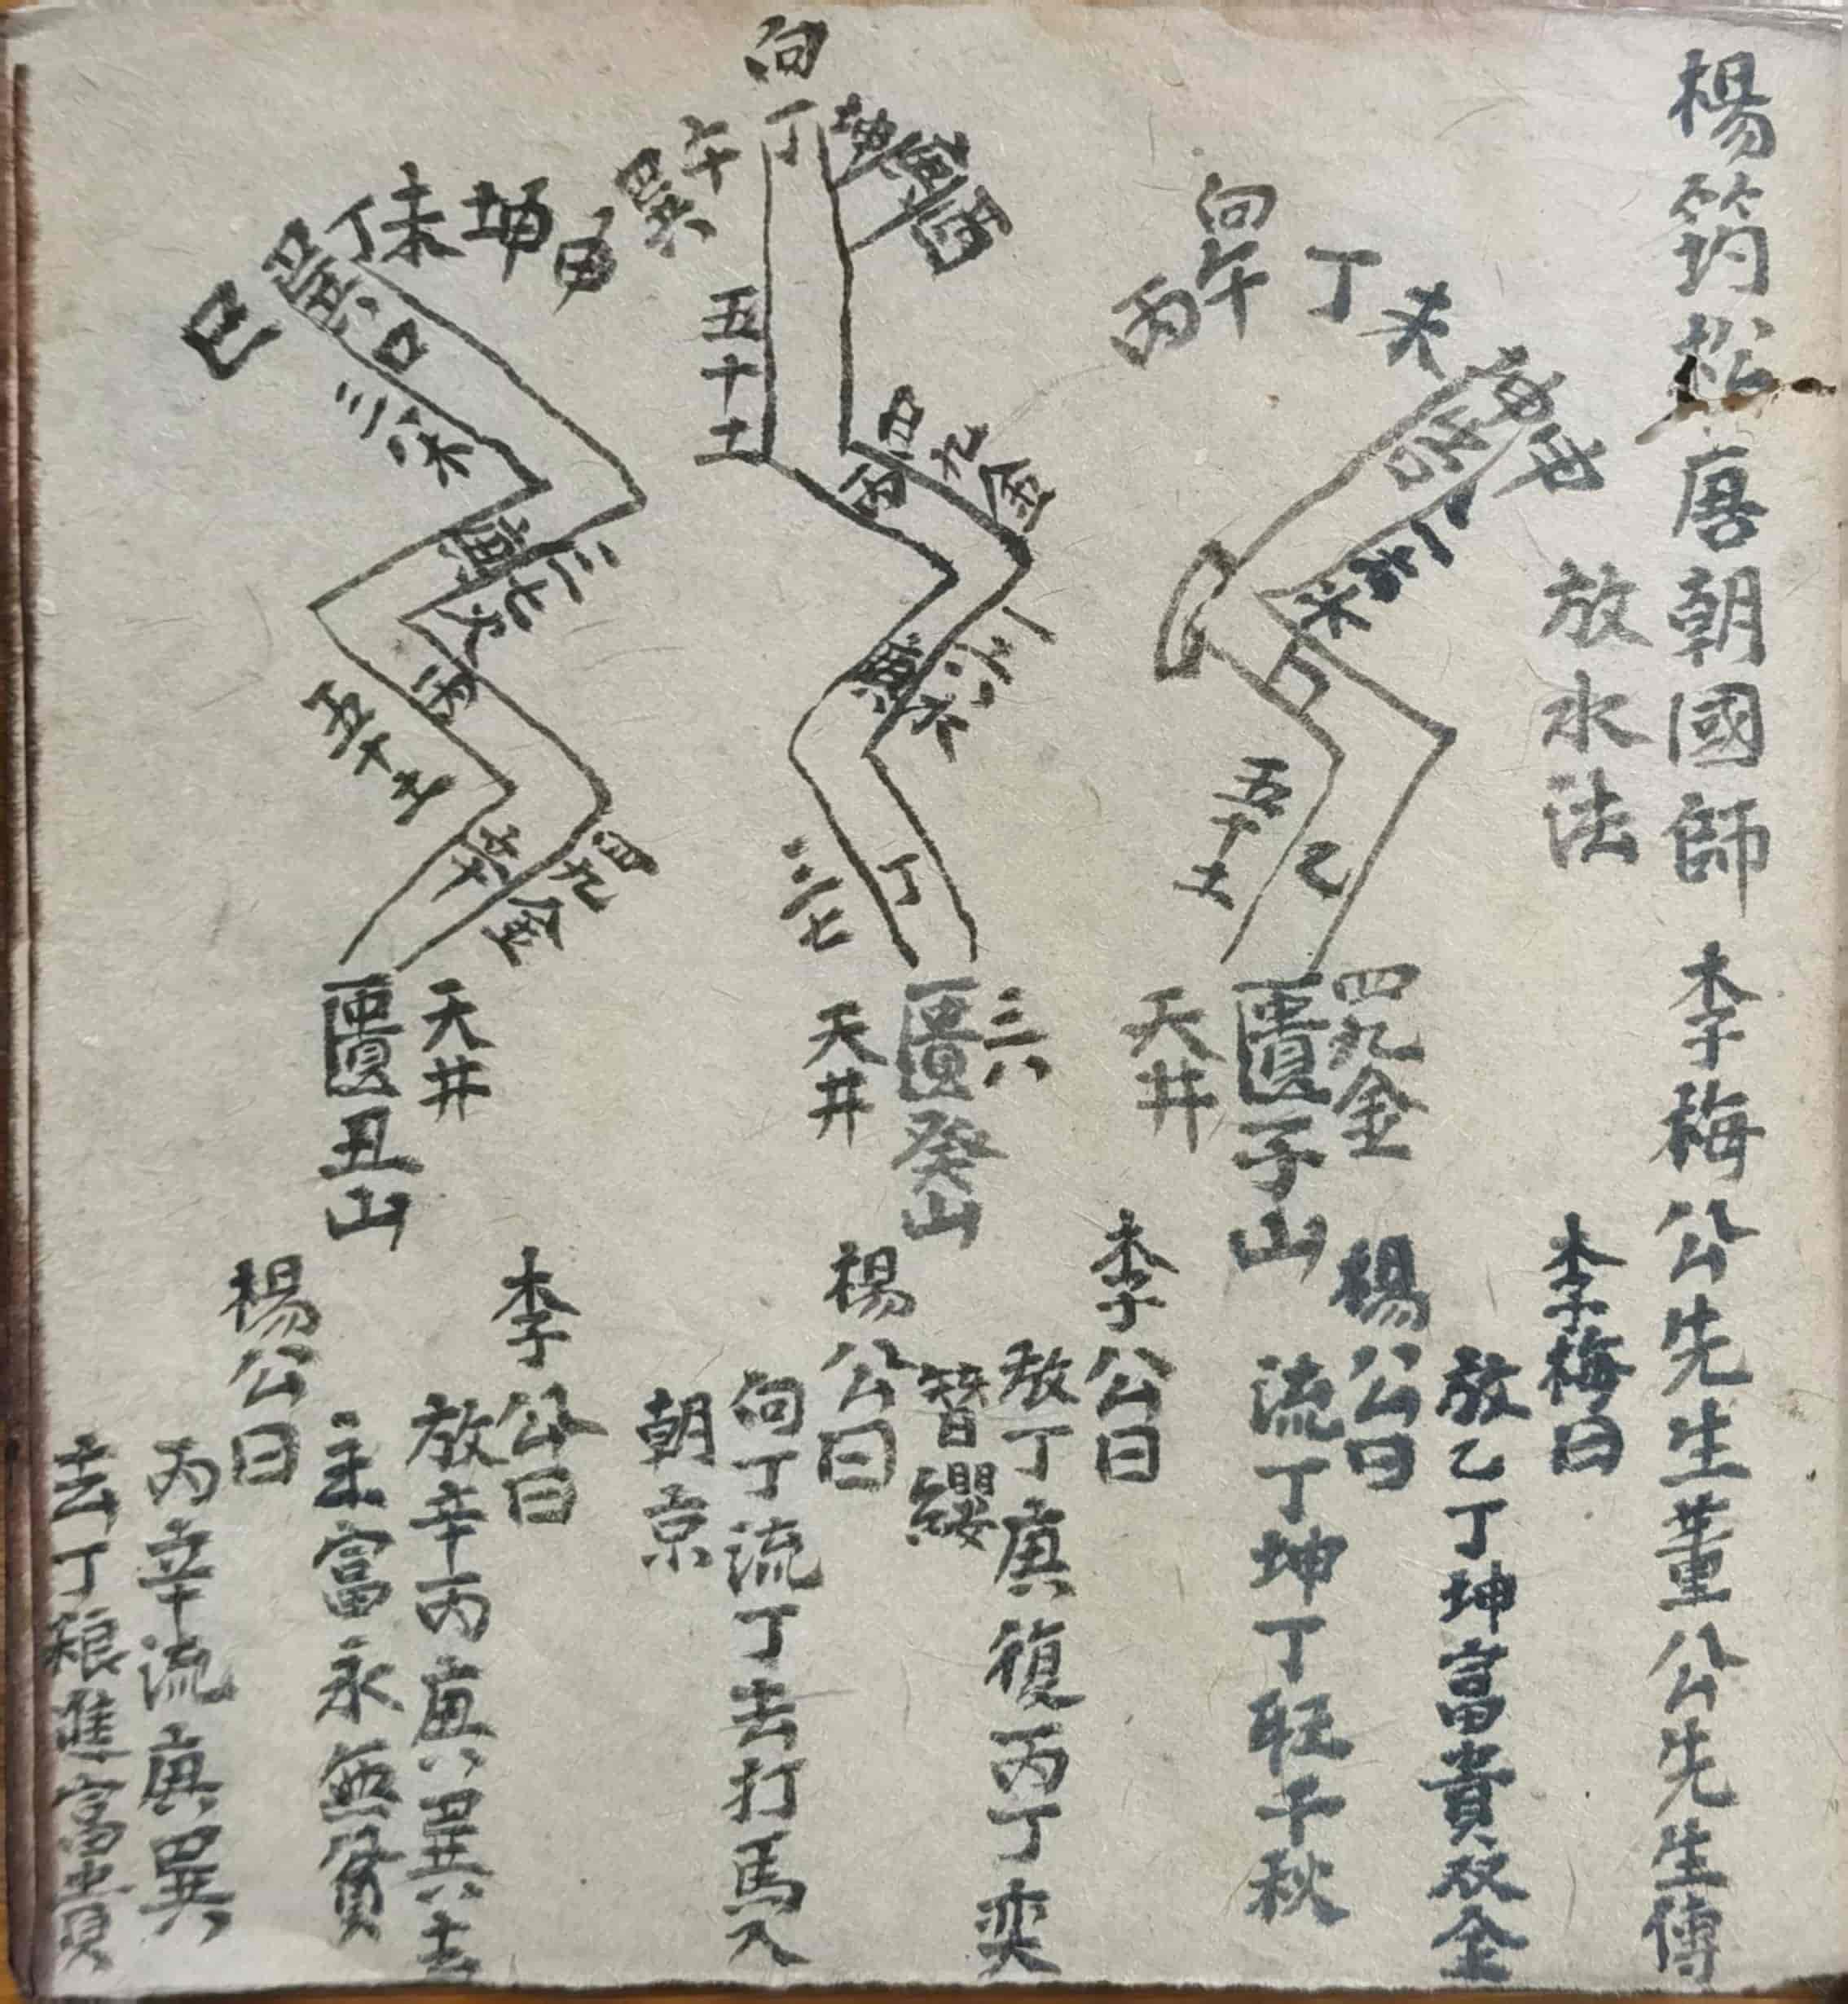 楊筠松唐朝國師 李梅公先生董公先生傳
放水法
李梅曰
放乙丁坤富貴双全
楊公曰
流丁坤丁旺千秋
向
丙午丁未
一六水
丁
五十土
乙
四九金
天井
匱子山
李公曰
放丁庚復丙丁奕
簪纓
楊公曰
向丁流丁去打馬入
朝京
向
巽午丁坤
五十土
四九金
丙
一六水
庚
丁
二七
三六
天井
匱癸山
李公曰
放辛丙庚巽去
主富永無貧
楊公曰
丙辛流庚巽
去丁粮進富貴
巳巽丁未坤申
口
三八木
庚
二七火
丙
五十土
辛
四九金
天井
匱丑山